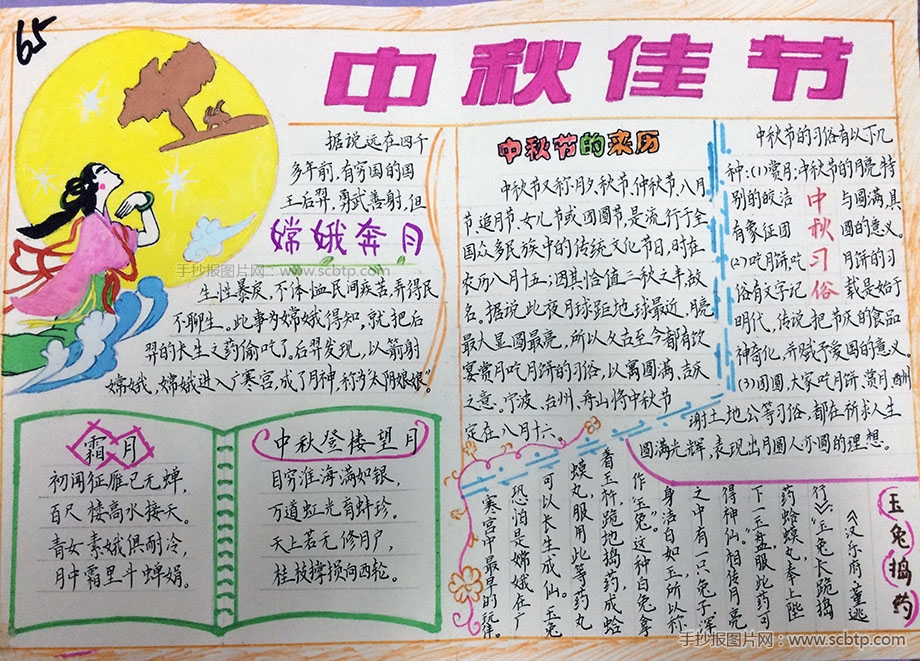 65
中秋佳节
据说远在四千
多年前,有穷国的国
王后羿,勇武善射,但
嫦娥奔月
生性暴戾,不体恤民间疾苦,弄得民
不聊生。此事为嫦娥得知,就把后
羿的长生之药偷吃了。后羿发现,以箭射
嫦娥,嫦娥进入广寒宫,成了月神,称为"太阴娘娘"。
手抄报图片网:www.scbtp.com
中秋节的来历
中秋节又称月夕,秋节、仲秋节、八月
节、追月节、女儿节或团圆节,是流行于全
国众多民族中的传统文化节日,时在
农历八月十五;因其恰值三秋之半,故
名。据说此夜月球距地球最近,月亮
最大最圆最亮,所以从古至今都有饮
宴赏月吃月饼的习俗,以寓圆满、吉庆
之意。宁波、台州、舟山将中秋节
定在八月十六。
中秋习俗
中秋节的习俗有以下几
种:(1)赏月:中秋节的月亮特
别的皎洁与圆满,具
有象征团圆的意义。
(2)吃月饼,吃月饼的习
俗有文字记载是始于
明代,传说把节庆的食品
神奇化,并赋予爱国的意义。
(3)团圆,大家吃月饼、赏月、酬
谢土地公等习俗,都在祈求人生
圆满光辉,表现出月圆人亦圆的理想。
霜月
初闻征雁已无蝉,
百尺楼高水接天。
青女素娥俱耐冷,
月中霜里斗蝉娟。
中秋登楼望月
目穷淮海满如银,
万道虹光育蚌珍。
天上若无修月户,
桂枝撑损向西轮。
玉兔捣药
《汉乐府·董逃
行》:"玉兔长跪捣
药蛤蟆丸,奉上陛
下一玉盘,服此药可
得神仙。"相传月亮
之中有一只兔子,浑
身洁白如玉,所以称
作"玉兔"。这种白兔拿
着玉杵,跪地捣药,成蛤
蟆丸,服用此等药丸
可以长生成仙。玉兔
恐怕是嫦娥在广
寒宫中最早的玩伴。
手抄报图片网:www.scbtp.com